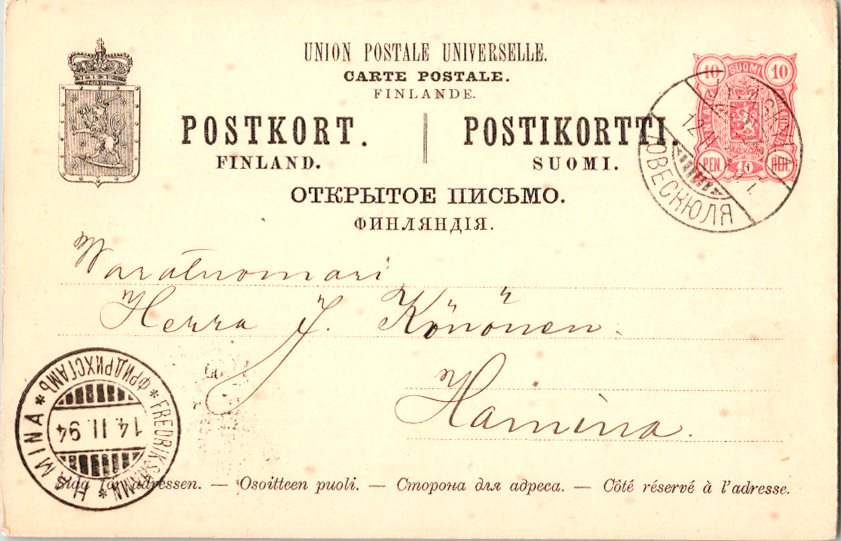 UNION POSTALE UNIVERSELLE.
CARTE POSTALE.
FINLANDE.
POSTKORT. POSTIKORTTI.
FINLAND. SUOMI.
ОТКРЫТОЕ ПИСЬМО.
ФИНЛЯНДІЯ.
10 SUOMI 10
PEN. 10
Waratuomari
Herra J. Könönen.
Hamina.
ФРИДРИХСГАМЪ * FREDRIKSHAMN * HAMINA *
14. II. 94
adressen. — Osoitteen puoli. — Сторона для адреса. — Côté réservé à l'adresse.